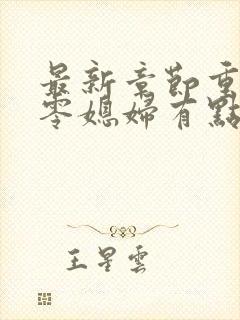 最新章節重
零媳婦有點
王星雲